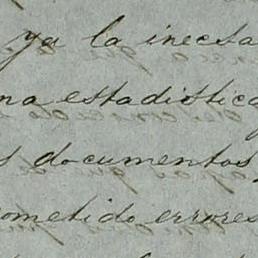 ya la inesta
na estadistica
s documentos,
ometido errores